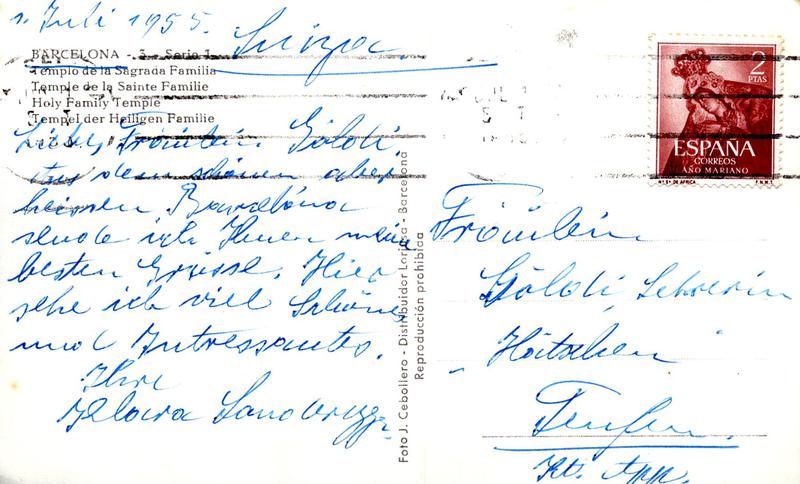 1. Juli 1955.
Suiza
BARCELONA - 3 - Serie I
Templo de la Sagrada Familia
Temple de la Sainte Familie
Holy Family Temple
Tempel der Heiligen Familie
Liebes Fräulein Göldi,
Aus dem schönen aber
heissen Barcelona
sende ich Ihnen meine
besten Grüsse. Hier
sehe ich viel Schönes
und Intressantes.
Ihre
Foto J. Cebollero - Distribuidor Lorjosa - Barcelona
Reproducción prohibida
2
PTAS
ESPAÑA
CORREOS
AÑO MARIANO
Nª Sª DE AFRICA
F.N.M.T.
Fräulein
Göldi, Lehrerin
Teufen.
Kt. App.